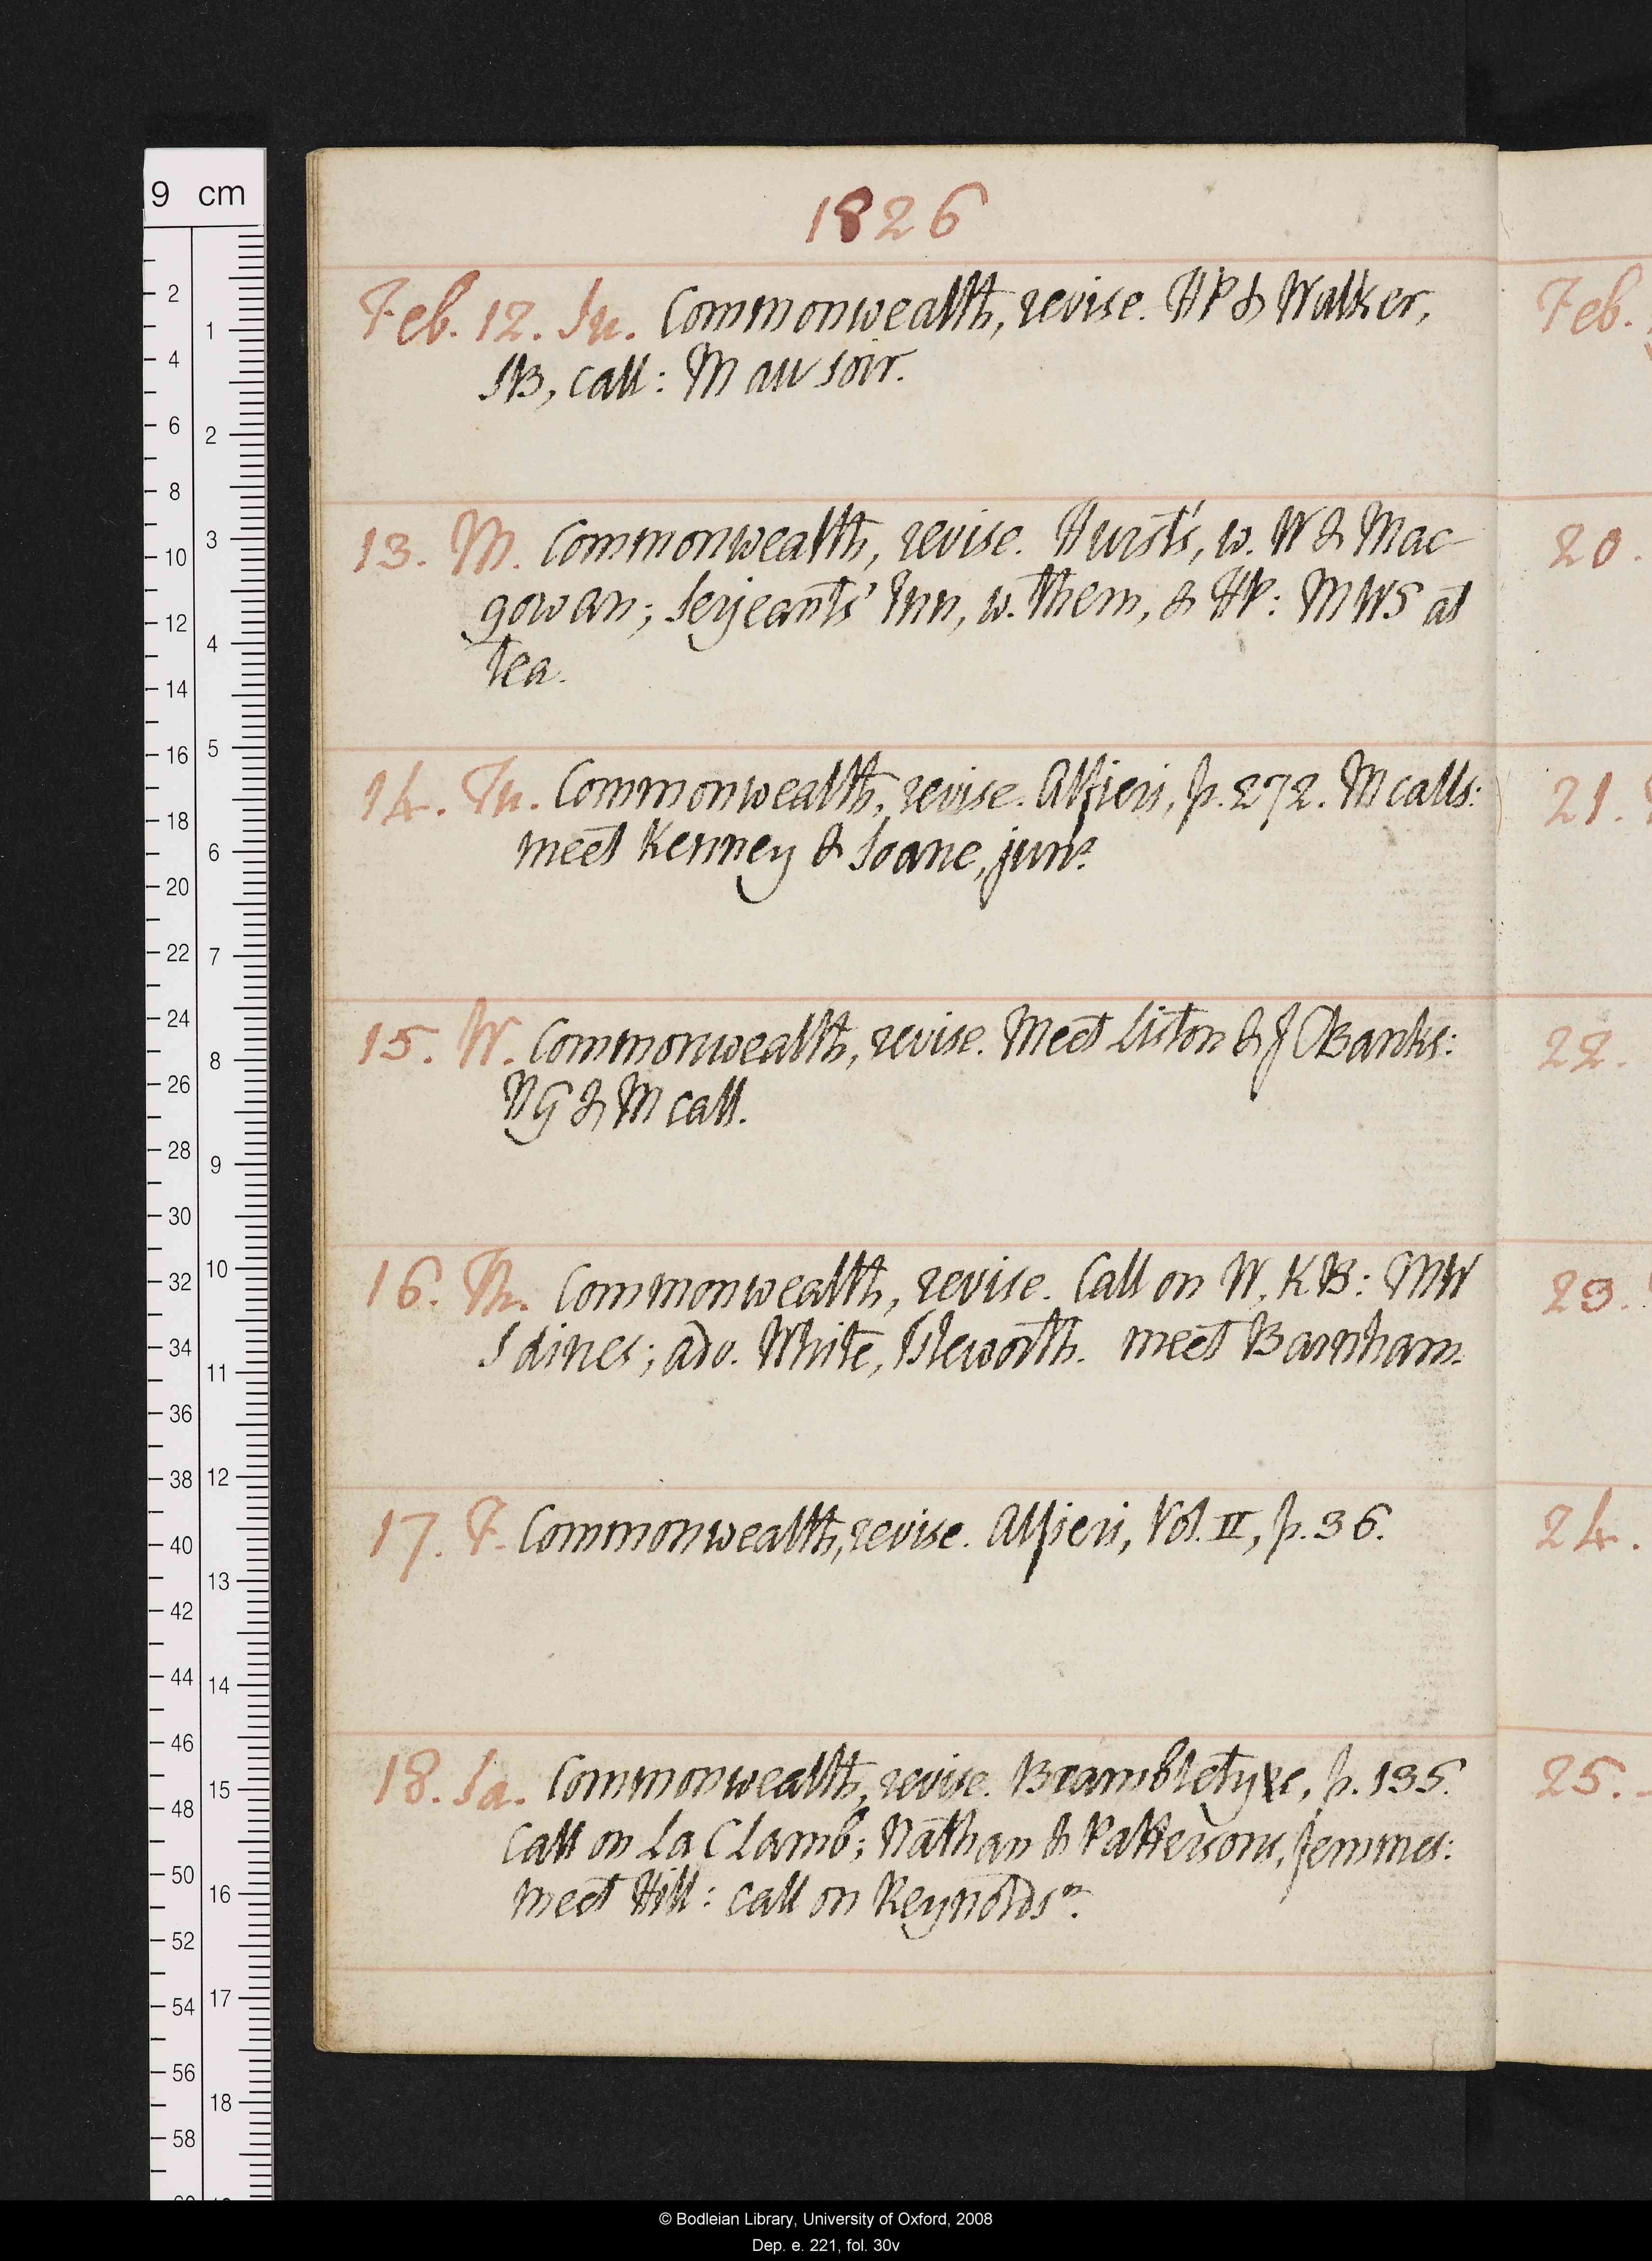 1826
Feb. 12. Su. Commonwealth, revise. HP & Walker,
SB, call: M au soir.
13. M. Commonwealth, revise. Hurst's, w. W & Mac-
gowan; Serjeants' Inn, w. them, & HP: MWS at
tea.
14. Tu. Commonwealth, revise. Alfieri, p. 272. M calls:
meet Kenney & Soane, junr.
15. W. Commonwealth, revise. Meet Liston & J Banks:
NG & M call.
16. Th. Commonwealth, revise. Call on W, KB: MW
S dines; adv. White, Isleworth. meet Barnham.
17. F. Commonwealth, revise. Alfieri, Vol. II, p. 36.
18. Sa. Commonwealth, revise. Brambletye, p. 135.
Call on La C Lamb; Nathan & Pattersons, femmes:
meet Hill: call on Reynolds n.
Feb.
20.
21.
22.
23.
24.
25.
9 cm
2
4
6
8
10
12
14
16
18
20
22
24
26
28
30
32
34
36
38
40
42
44
46
48
50
52
54
56
58
1
2
3
4
5
6
7
8
9
10
11
12
13
14
15
16
17
18
© Bodleian Library, University of Oxford, 2008
Dep. e. 221, fol. 30v